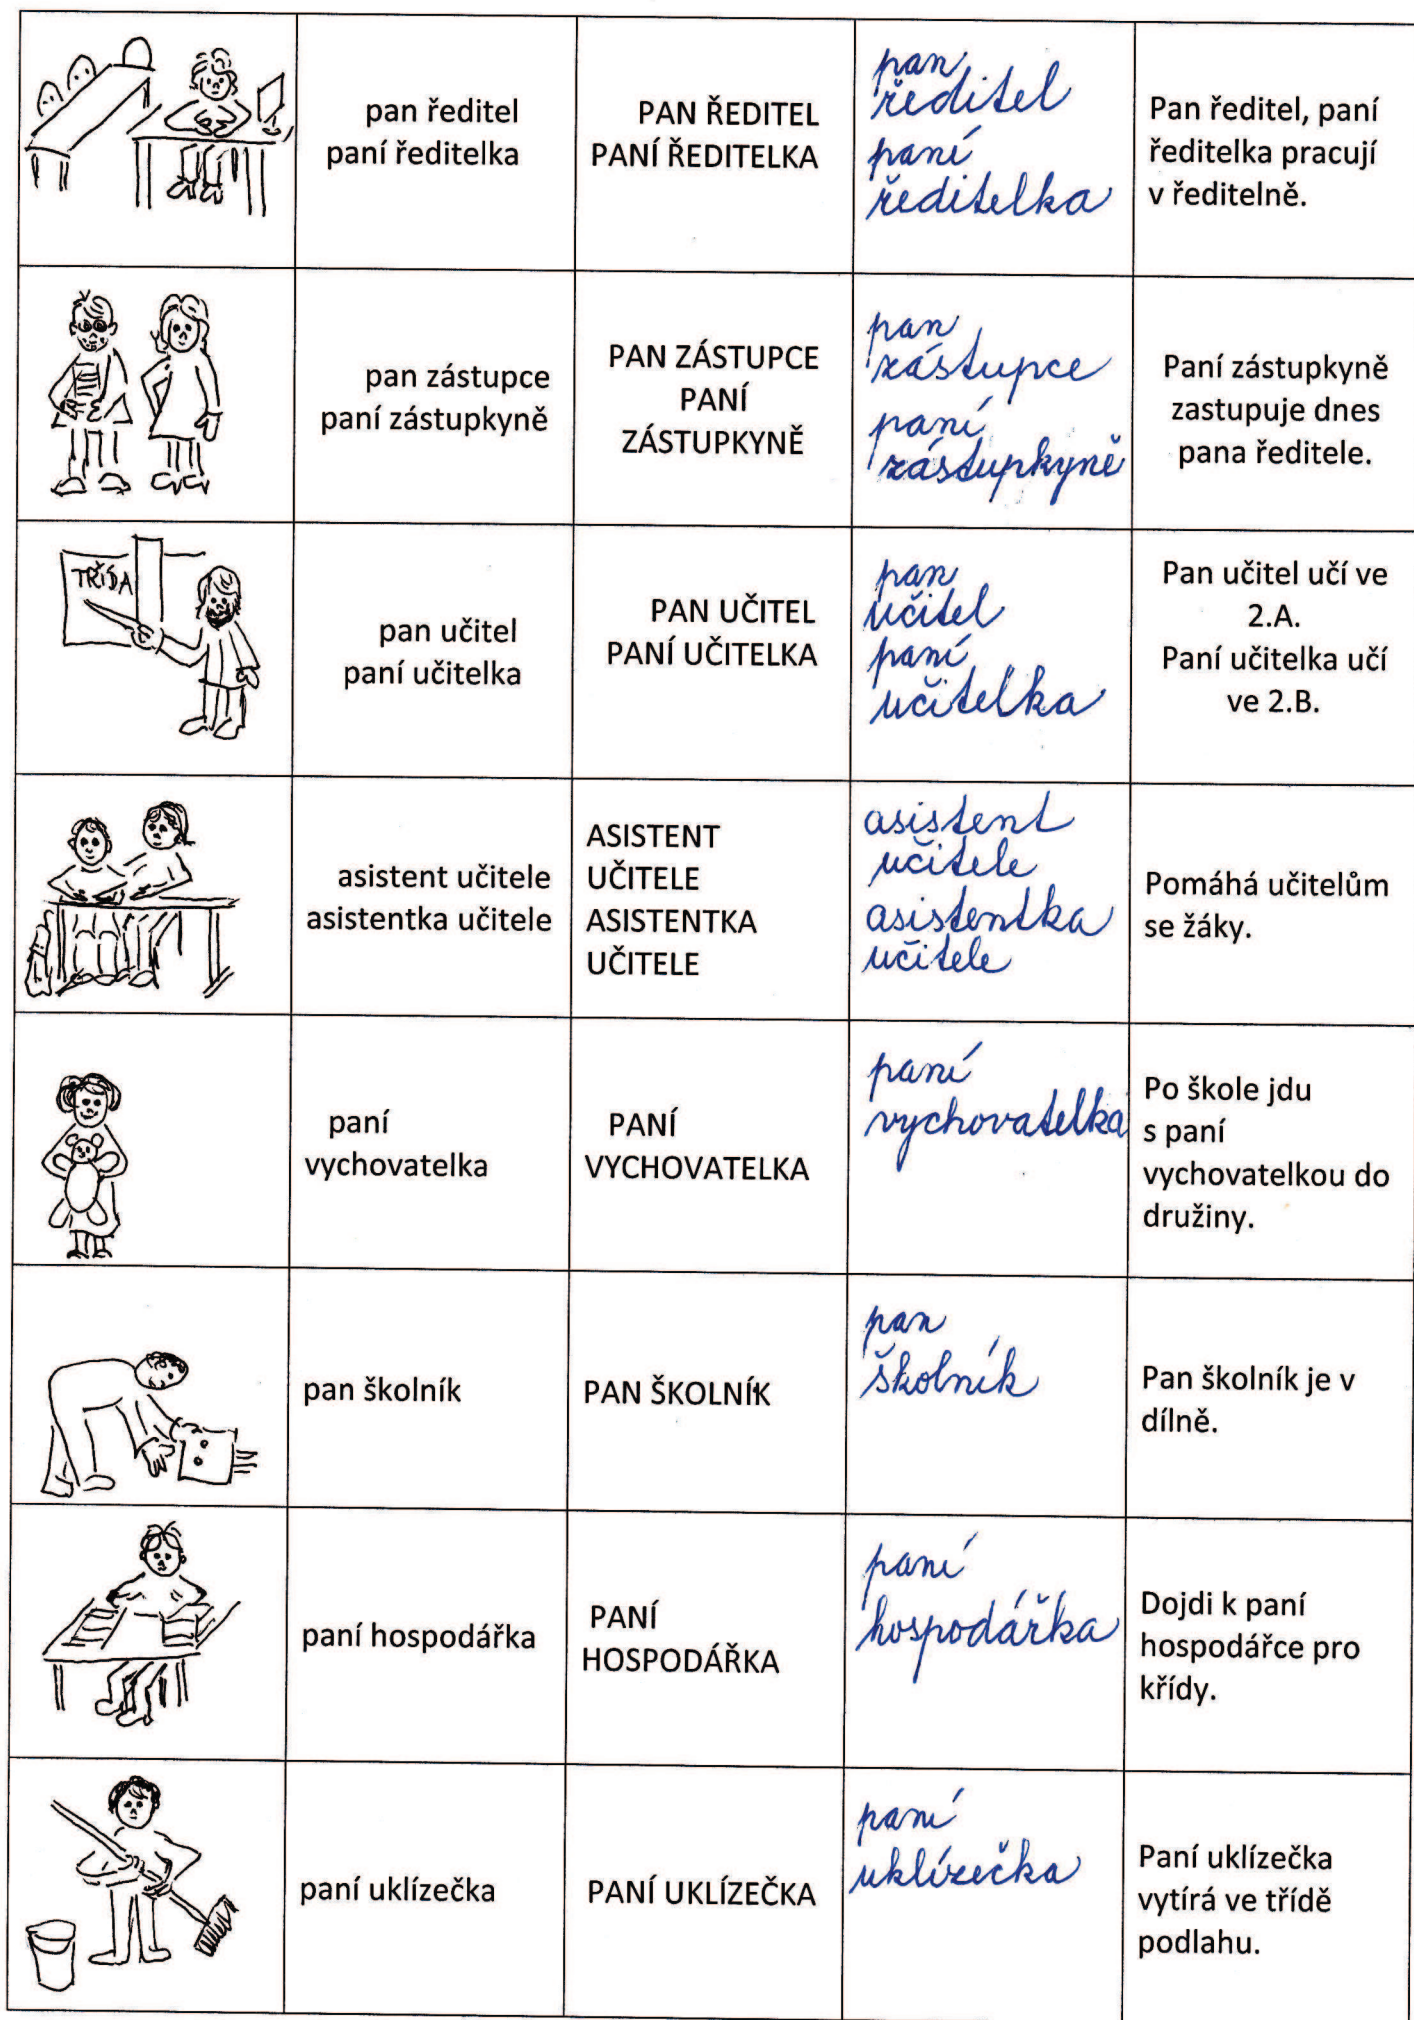 pan ředitel
paní ředitelka
PAN ŘEDITEL
PANÍ ŘEDITELKA
pan
ředitel
paní
ředitelka
Pan ředitel, paní
ředitelka pracují
v ředitelně.
pan zástupce
paní zástupkyně
PAN ZÁSTUPCE
PANÍ
ZÁSTUPKYNĚ
pan
zástupce
paní
zástupkyně
Paní zástupkyně
zastupuje dnes
pana ředitele.
TŘÍDA
pan učitel
paní učitelka
PAN UČITEL
PANÍ UČITELKA
pan
učitel
paní
učitelka
Pan učitel učí ve
2.A.
Paní učitelka učí
ve 2.B.
asistent učitele
asistentka učitele
ASISTENT
UČITELE
ASISTENTKA
UČITELE
asistent
učitele
asistentka
učitele
Pomáhá učitelům
se žáky.
paní
vychovatelka
PANÍ
VYCHOVATELKA
paní
vychovatelka
Po škole jdu
s paní
vychovatelkou do
družiny.
pan školník
PAN ŠKOLNÍK
pan
školník
Pan školník je v
dílně.
paní hospodářka
PANÍ
HOSPODÁŘKA
paní
hospodářka
Dojdi k paní
hospodářce pro
křídy.
paní uklízečka
PANÍ UKLÍZEČKA
paní
uklízečka
Paní uklízečka
vytírá ve třídě
podlahu.